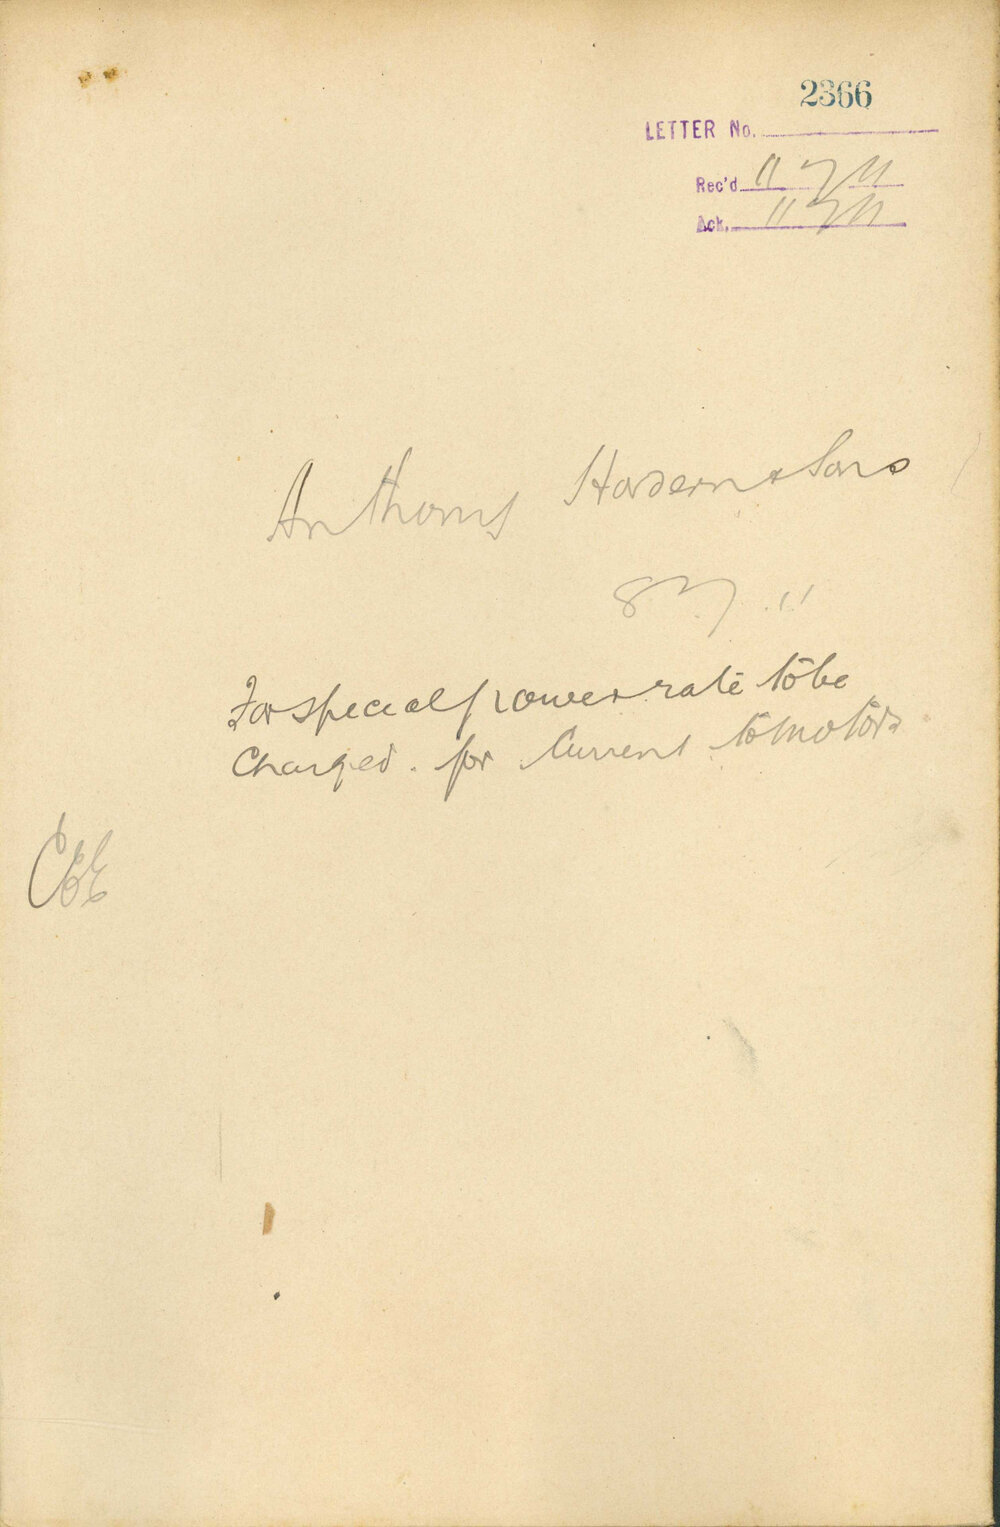 2366
LETTER No.
Rec'd 11 7 11
Ack. 11 7 11
Anthony Hordern & Sons
8 7 11
For special power rate to be
Charged. for Current to motors